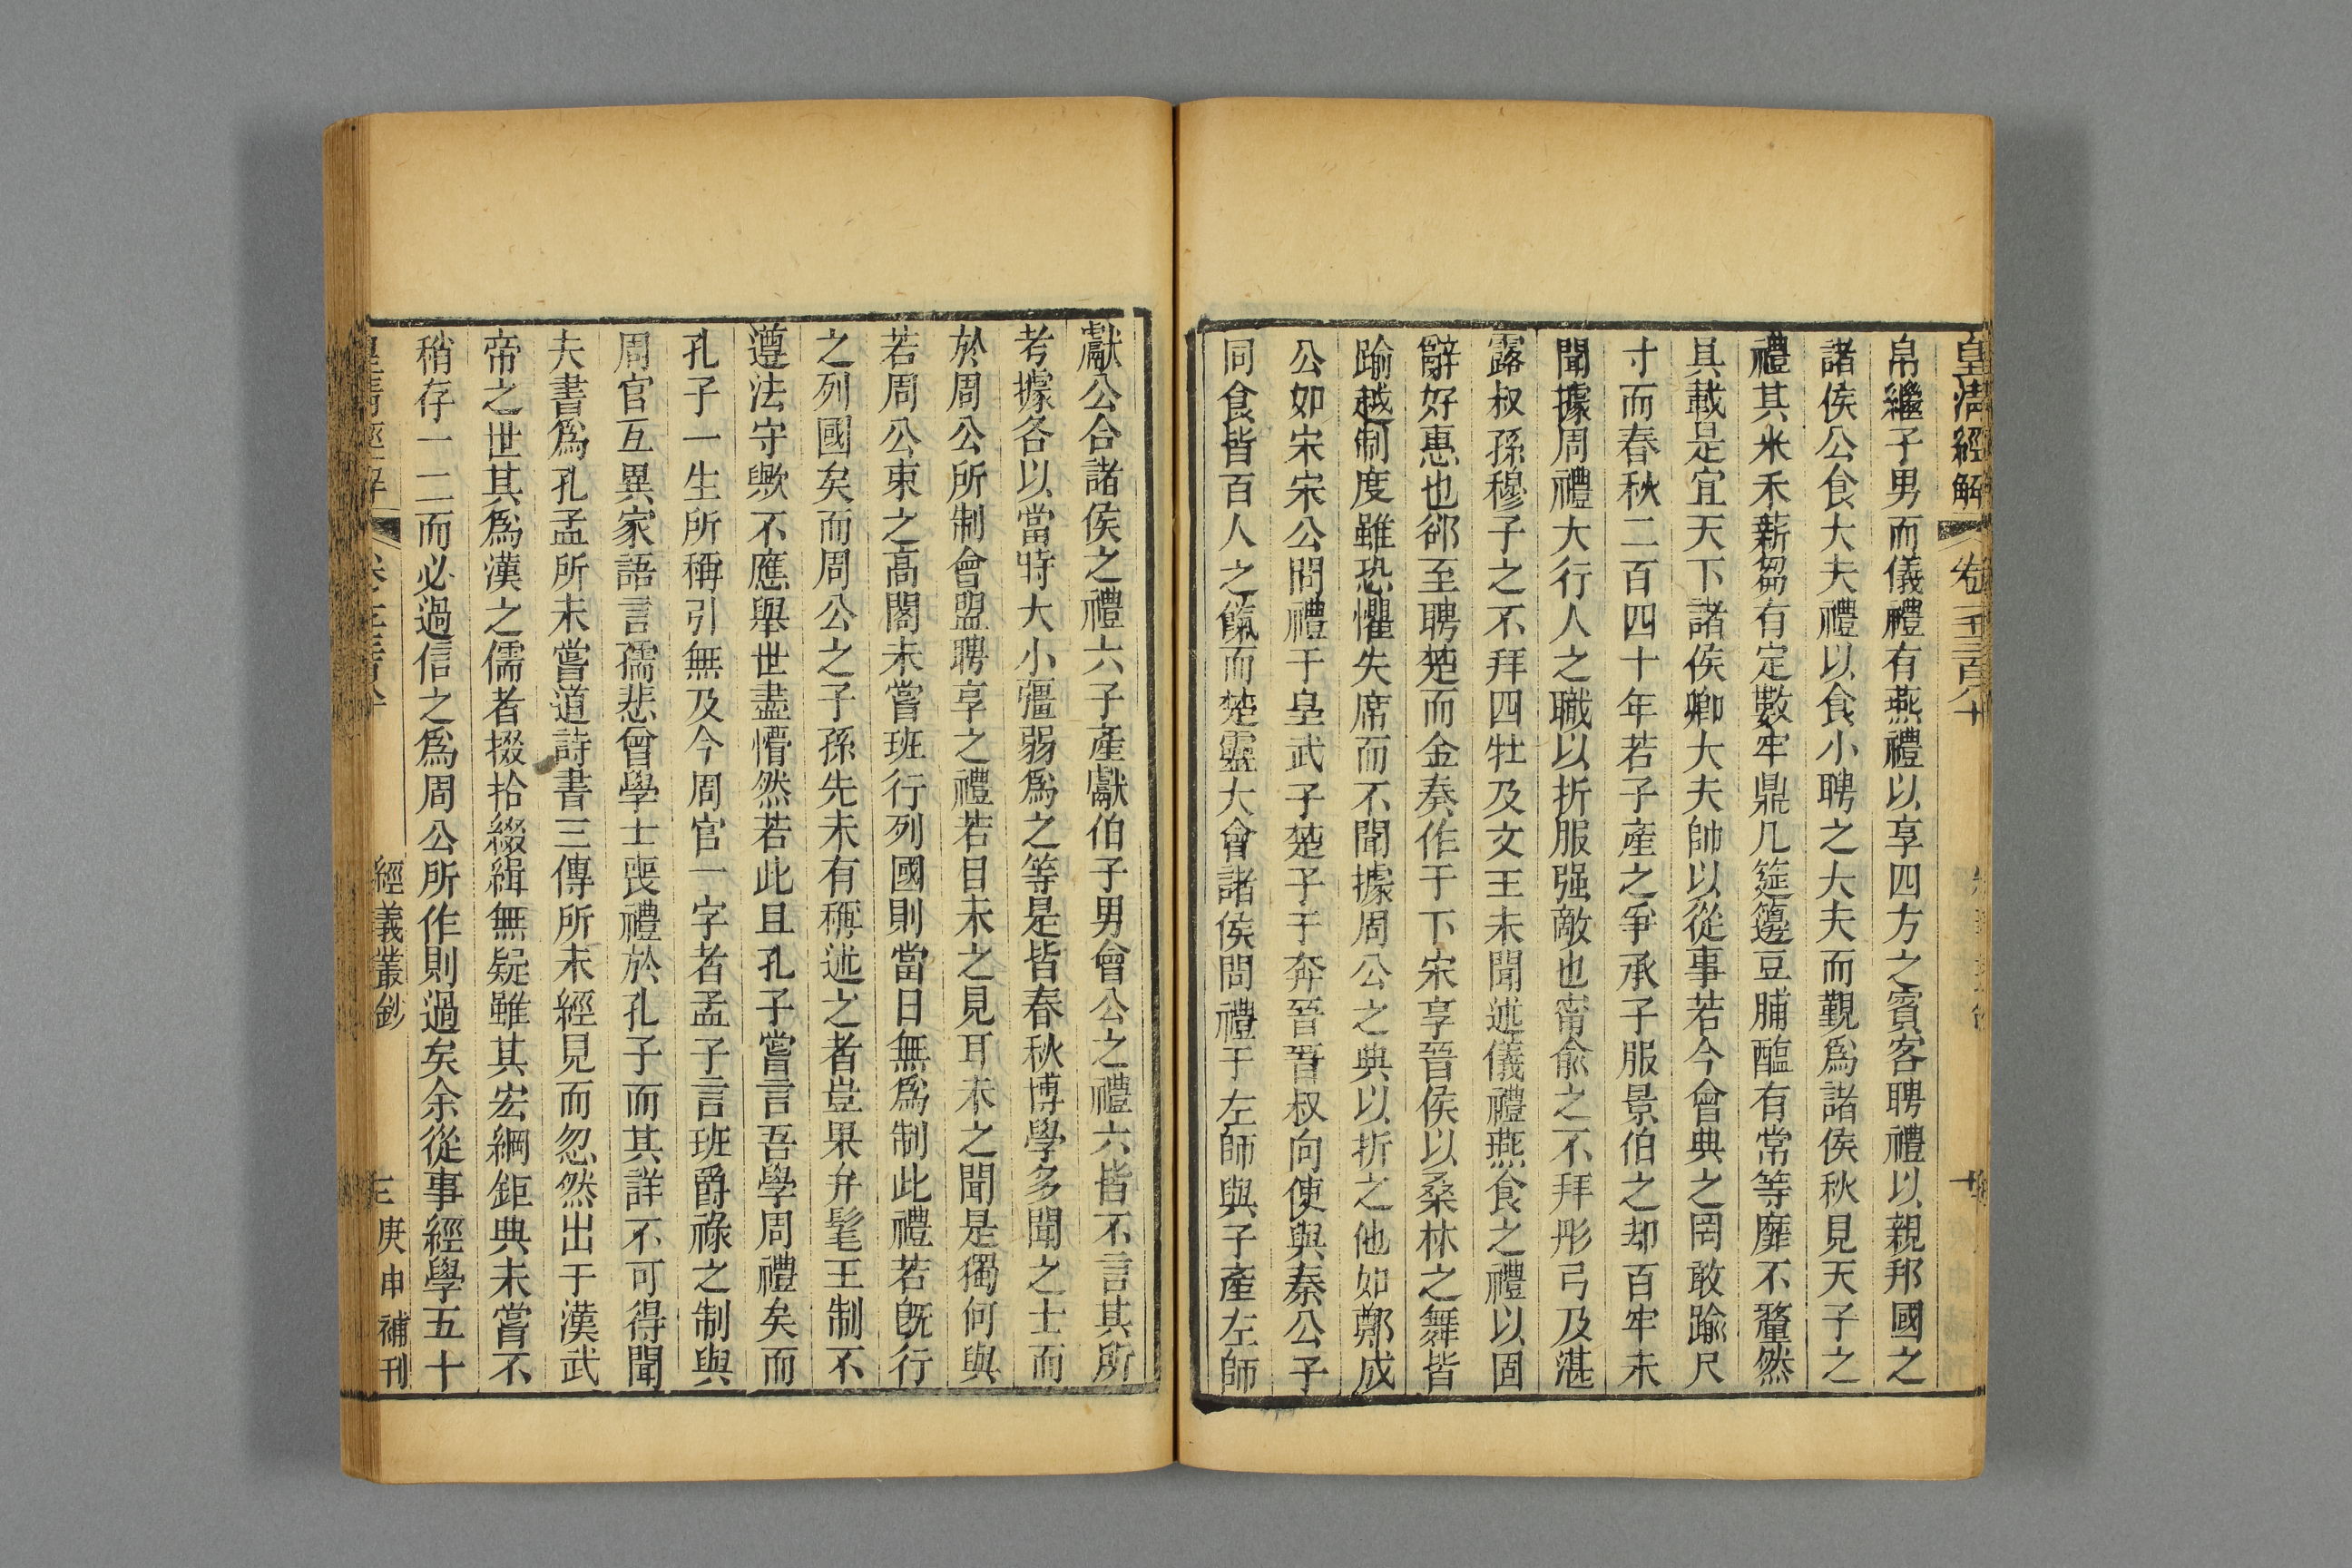 皇清經解 卷一千三百八十
帛繼子男而儀禮有燕禮以享四方之賓客聘禮以親邦國之
諸侯公食大夫禮以食小聘之大夫而覲爲諸侯秋見天子之
禮其米禾薪芻有定數牢鼎几筵籩豆脯醢有常等靡不釐然
具載是宜天下諸侯卿大夫帥以從事若今會典之罔敢踰尺
寸而春秋二百四十年若子產之爭承子服景伯之却百牢未
聞據周禮大行人之職以折服强敵也甯俞之不拜彤弓及湛
露叔孫穆子之不拜四牡及文王未聞述儀禮燕食之禮以固
辭好惠也郤至聘楚而金奏作于下宋享晉侯以桑林之舞皆
踰越制度雖恐懼失席而不聞據周公之典以折之他如鄭成
公如宋宋公問禮于皇武子楚子干奔晉晉叔向使與秦公子
同食皆百人之餼而楚靈大會諸侯問禮于左師與子產左師
獻公合諸侯之禮六子產獻伯子男會公之禮六皆不言其所
考據各以當時大小彊弱爲之等是皆春秋博學多聞之士而
於周公所制會盟聘享之禮若目未之見耳未之聞是獨何與
若周公束之高閣未嘗班行列國則當日無爲制此禮若旣行
之列國矣而周公之子孫先未有稱述之者豈果弁髦王制不
遵法守歟不應舉世盡懵然若此且孔子嘗言吾學周禮矣而
孔子一生所稱引無及今周官一字者孟子言班爵祿之制與
周官互異家語言孺悲曾學士喪禮於孔子而其詳不可得聞
夫書爲孔孟所未嘗道詩書三傳所未經見而忽然出于漢武
帝之世其爲漢之儒者掇拾綴緝無疑雖其宏綱鉅典未嘗不
稍存一二而必過信之爲周公所作則過矣余從事經學五十
經義叢鈔 庚申補刊